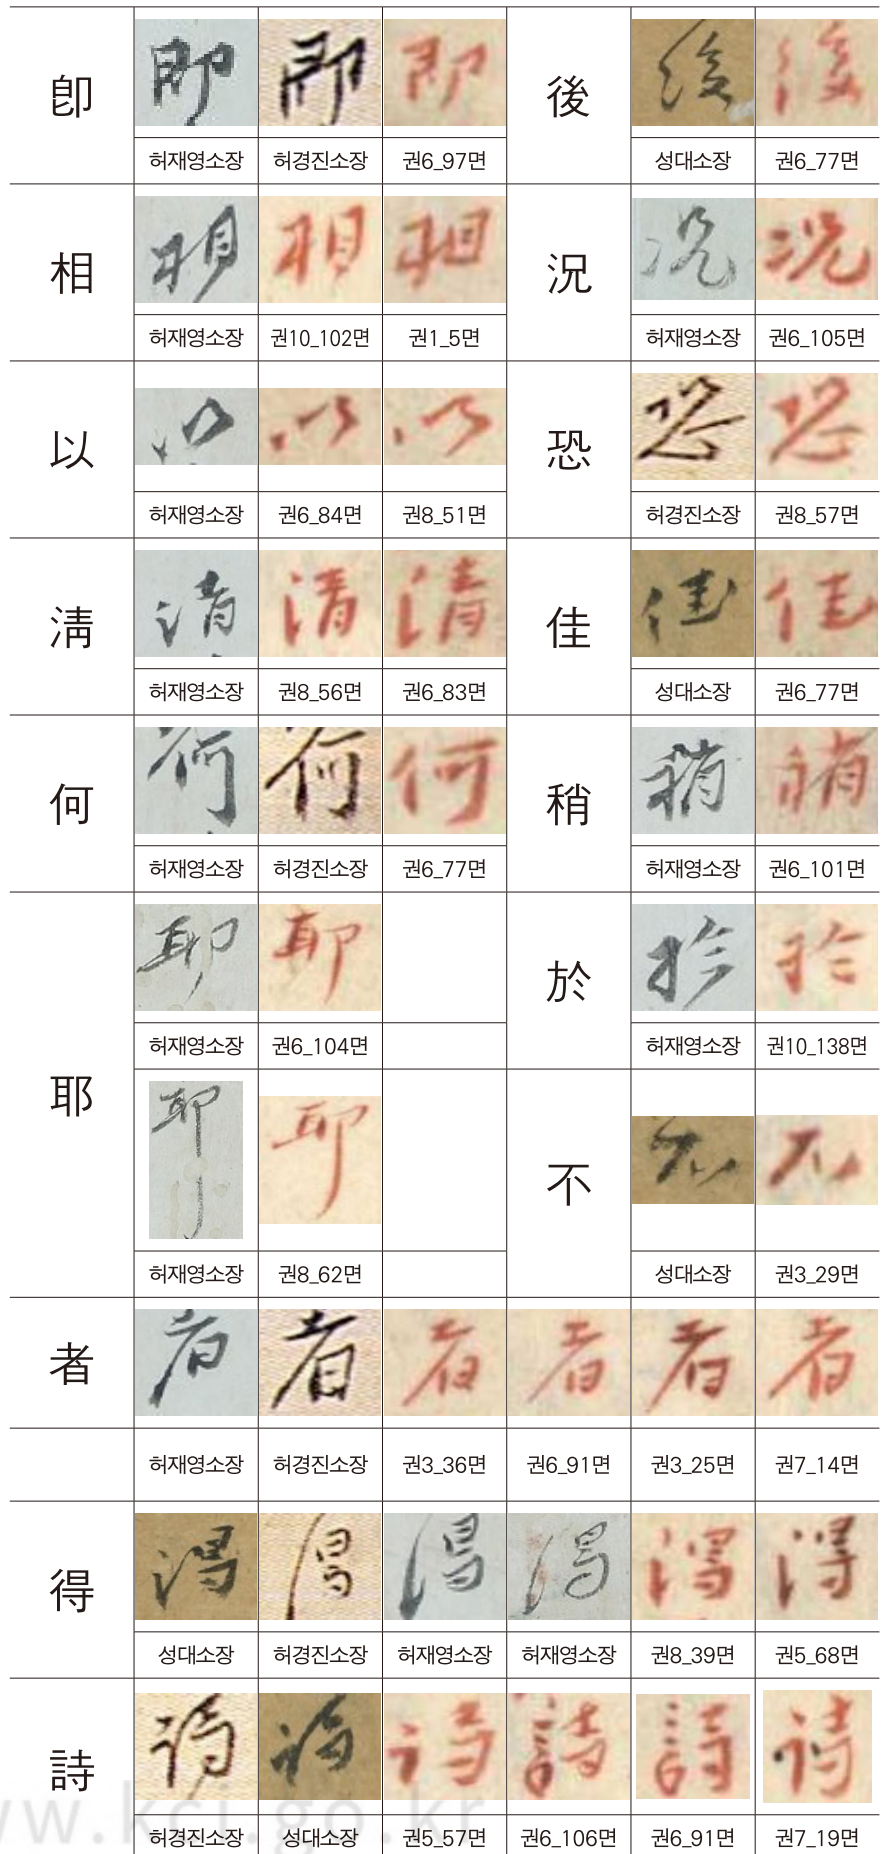 卽 後
허재영소장 허경진소장 권6_97면 성대소장 권6_77면
相 況
허재영소장 권10_102면 권1_5면 허재영소장 권6_105면
以 恐
허재영소장 권6_84면 권8_51면 허경진소장 권8_57면
淸 佳
허재영소장 권8_56면 권6_83면 성대소장 권6_77면
何 稍
허재영소장 허경진소장 권6_77면 허재영소장 권6_101면
耶 於
허재영소장 권6_104면 허재영소장 권10_138면
不
허재영소장 권8_62면 성대소장 권3_29면
者
허재영소장 허경진소장 권3_36면 권6_91면 권3_25면 권7_14면
得
성대소장 허경진소장 허재영소장 허재영소장 권8_39면 권5_68면
詩
허경진소장 성대소장 권5_57면 권6_106면 권6_91면 권7_19면